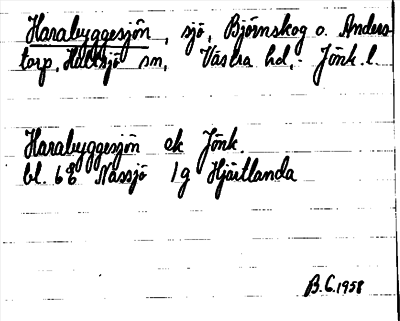 Harabyggesjön, sjö, Björnskog o. Anders
torp, Hultsjö sn, Västra hd, Jönk. l.
Harabyggesjön ek Jönk.
bl. 6E Nässjö 1g Hjärtlanda
B.G. 1958